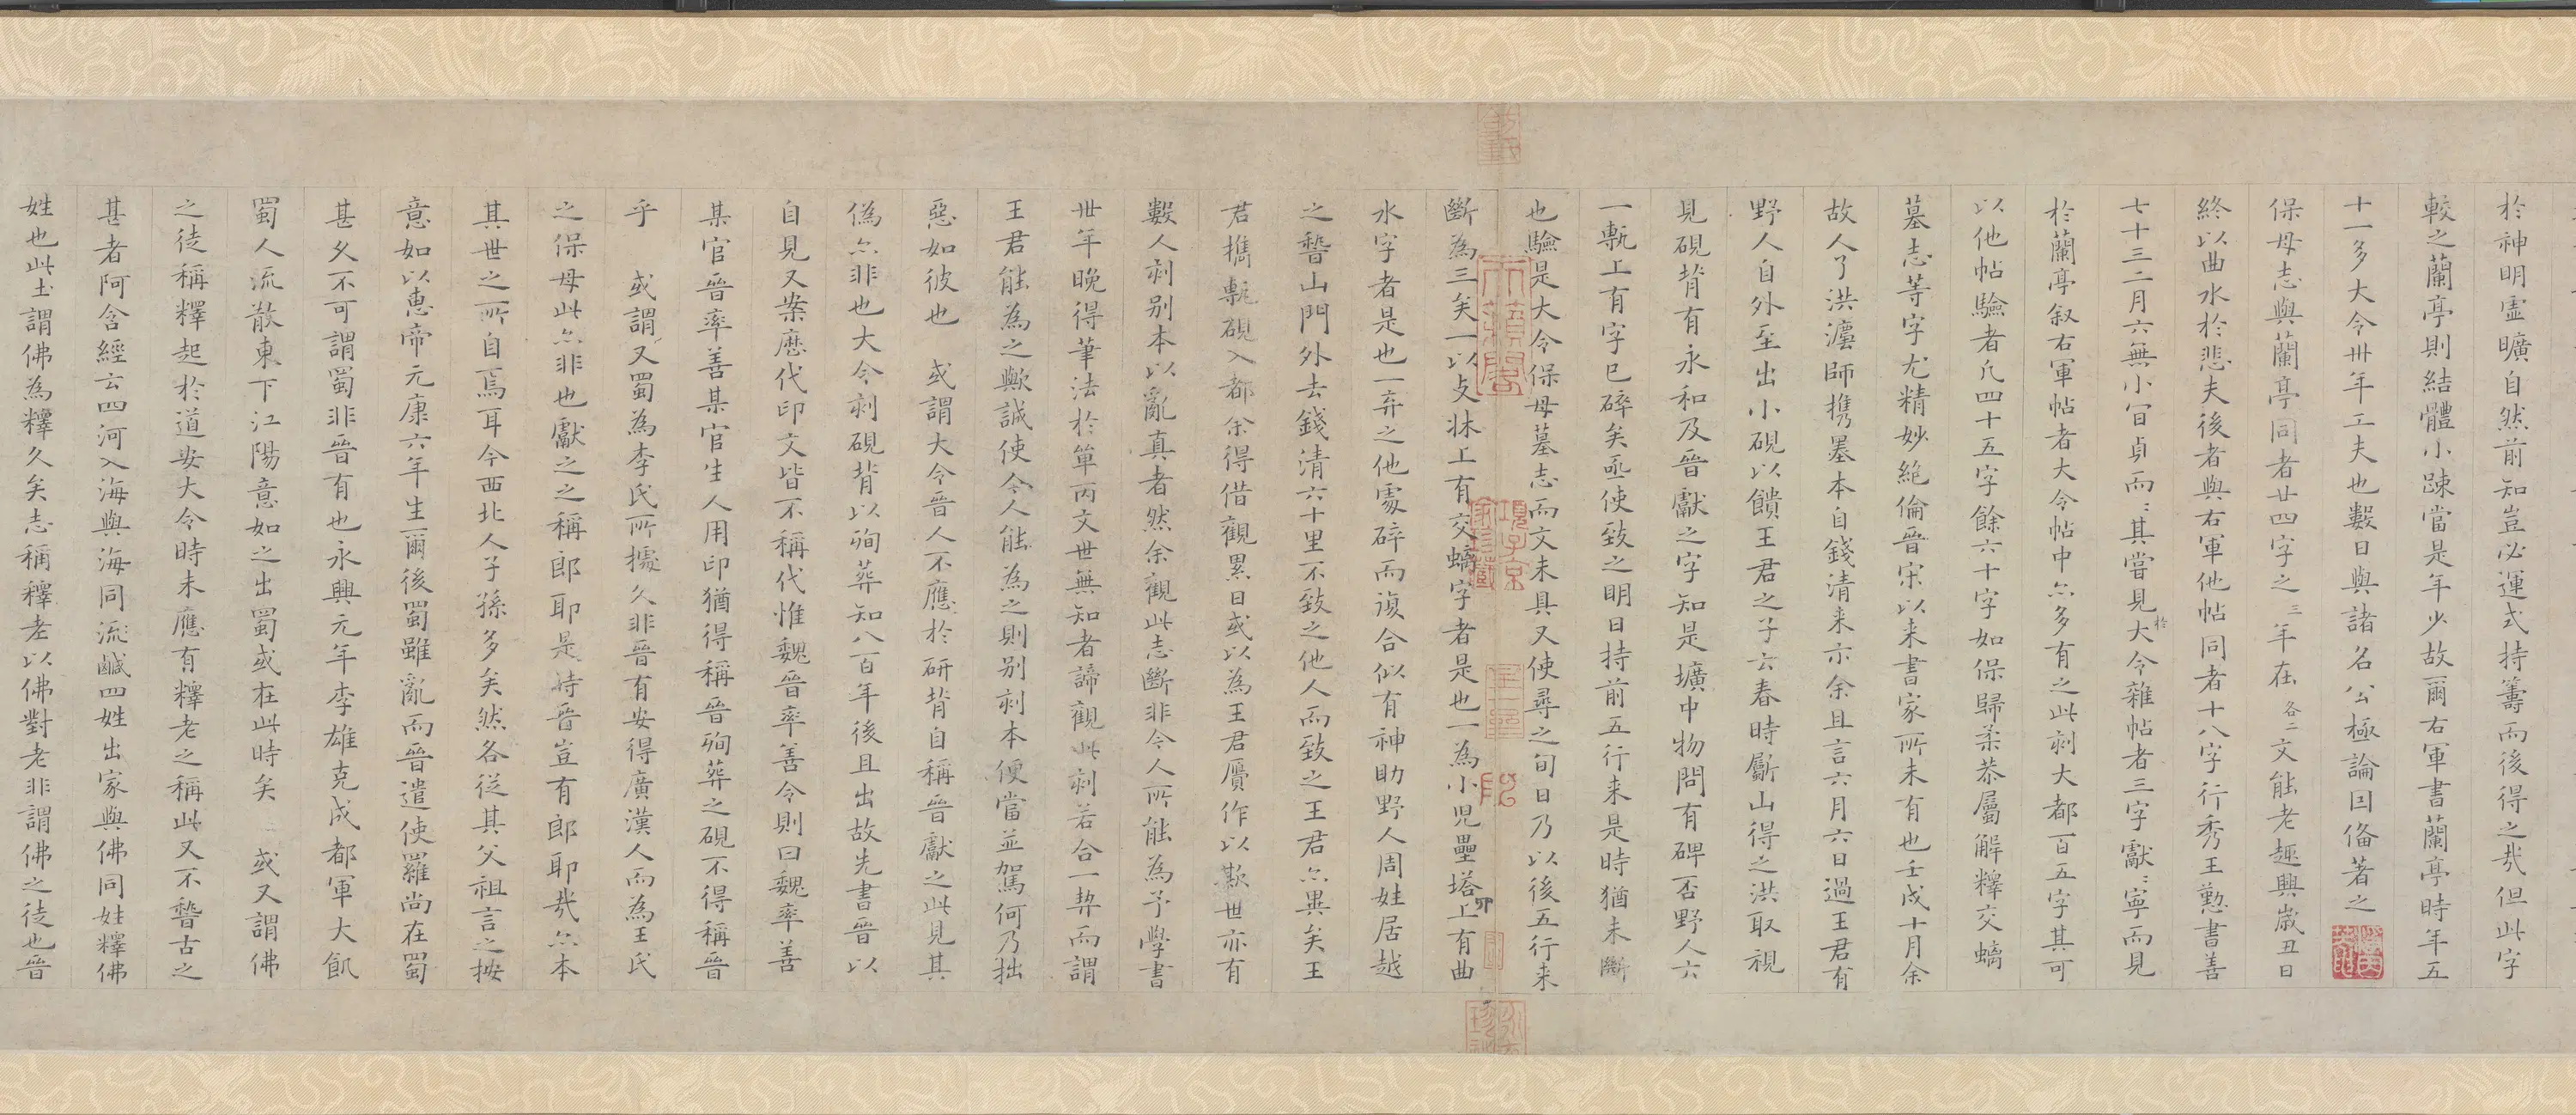 於神明虛曠自然前知豈必運式持籌而後得之哉但此字
較之蘭亭則結體小踈當是年少故爾右軍書蘭亭時年五
十一多大令卅年工夫也數日與諸名公極論因俻著之
保母志與蘭亭同者廿四字之三年在各二文能老趣興歲丑日
終以曲水於悲夫後者與右軍他帖同者十八字行秀王懃書善
七十三二月六無小冝貞而〻其嘗見於大令雜帖者三字獻〻寧而見
於蘭亭叙右軍帖者大令帖中亦多有之此刻大都百五字其可
以他帖驗者凡四十五字餘六十字如保歸柔恭屬解釋交螭
墓志等字尤精妙絶倫晉宋以来書家所未有也壬戌十月余
故人了洪瀍師携墓本自錢清来示余且言六月六日過王君有
野人自外至出小硯以饋王君之子云春時斸山得之洪取視
見硯背有永和及晉獻之字知是壙中物問有碑否野人云
一甎上有字已碎矣亟使致之明日持前五行来是時猶未斷
也驗是大令保母墓志而文未具又使尋之旬日乃以後五行来
斷為三矣一以支牀上有交螭字者是也一為小児壘塔上有曲
水字者是也一弃之他處碎而復合似有神助野人周姓居越
之稽山門外去錢清六十里不致之他人而致之王君亦異矣王
君携甎硯入都余得借觀累日或以為王君贋作以欺世亦有
數人刻别本以亂真者然余觀此志斷非今人所能為予學書
卅年晚得筆法於單丙文世無知者諦觀此刻若合一契而謂
王君能為之歟誠使今人能為之則别刻本便當並駕何乃拙
惡如彼也 或謂大令晉人不應於研背自稱晉獻之此見其
偽亦非也大令刻硯背以殉葬知八百年後且出故先書晉以
自見又案歴代印文皆不稱代惟魏晉率善令則曰魏率善
某官晉率善某官生人用印猶得稱晉殉葬之硯不得稱晉
乎 或謂又蜀為李氏所據久非晉有安得廣漢人而為王氏
之保母此亦非也獻之之稱郎耶是時晉豈有郎耶哉亦本
其世之所自焉耳今西北人子孫多矣然各従其父祖言之按
意如以惠帝元康六年生爾後蜀雖亂而晉遣使羅尚在蜀
甚久不可謂蜀非晉有也永興元年李雄克成都軍大飢
蜀人流散東下江陽意如之出蜀或在此時矣 或又謂佛
之徒稱釋起於道安大令時未應有釋老之稱此又不稽古之
甚者阿含經云四河入海與海同流鹹四姓出家與佛同姓釋佛
姓也此土謂佛為釋久矣志稱釋老以佛對老非謂佛之徒也晉